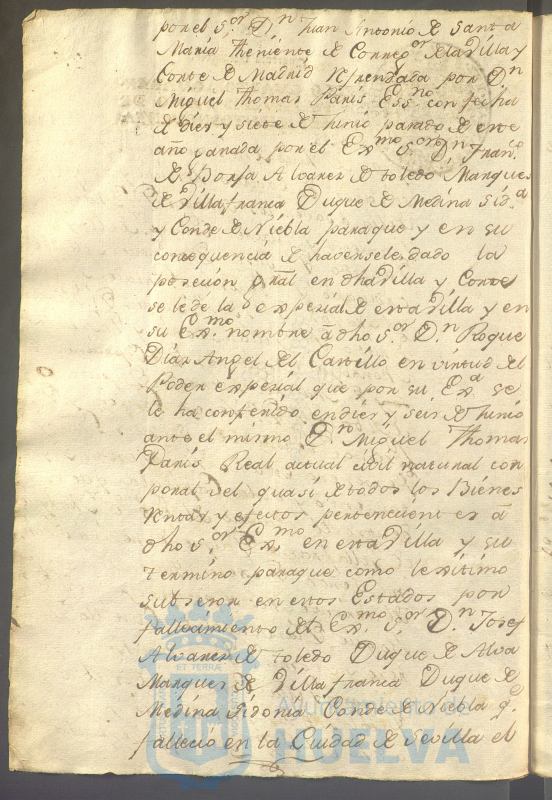 por el S.or D.n Juan Antonio de Santa
Maria Theniente de Correg.or de la Villa y
Corte de Madrid refrendada por D.n
Miguel Thomas Paris Ess.no con fecha
de diez y siete de Junio pasado de este
año ganada por el Ex.mo S.or D.n Fran.co
de Borja Alvarez de toledo Marques
de Villafranca Duque de Medina Sid.a
y Conde de Niebla paraque y en su
consequencia de haversele dado la
posecion gral en dha Villa y Corte
se le de la especial de esta Villa y en
su Ex.mo nombre á dho S.or D.n Roque
Diaz Angel del Castillo en virtud del
Poder expecial que por su Ex.a se
le ha conferido en diez y seis de Junio
ante el mismo D.n Miguel Thomas
Paris Real actual civil natural cor
poral vel quasi de todos los Bienes
rentas y efectos pertenecientes á
dho S.or Ex.mo en esta Villa y su
termino paraque como lexitimo
subcesor en estos Estados por
fallecimiento del Ex.mo S.or D.n Josef
Alvarez de toledo Duque de Alva
Marques de Villafranca Duque de
Medina Sidonia Conde de Niebla q.e
fallecio en la Ciudad de Sevilla el
Ayuntamiento de
HUELVA